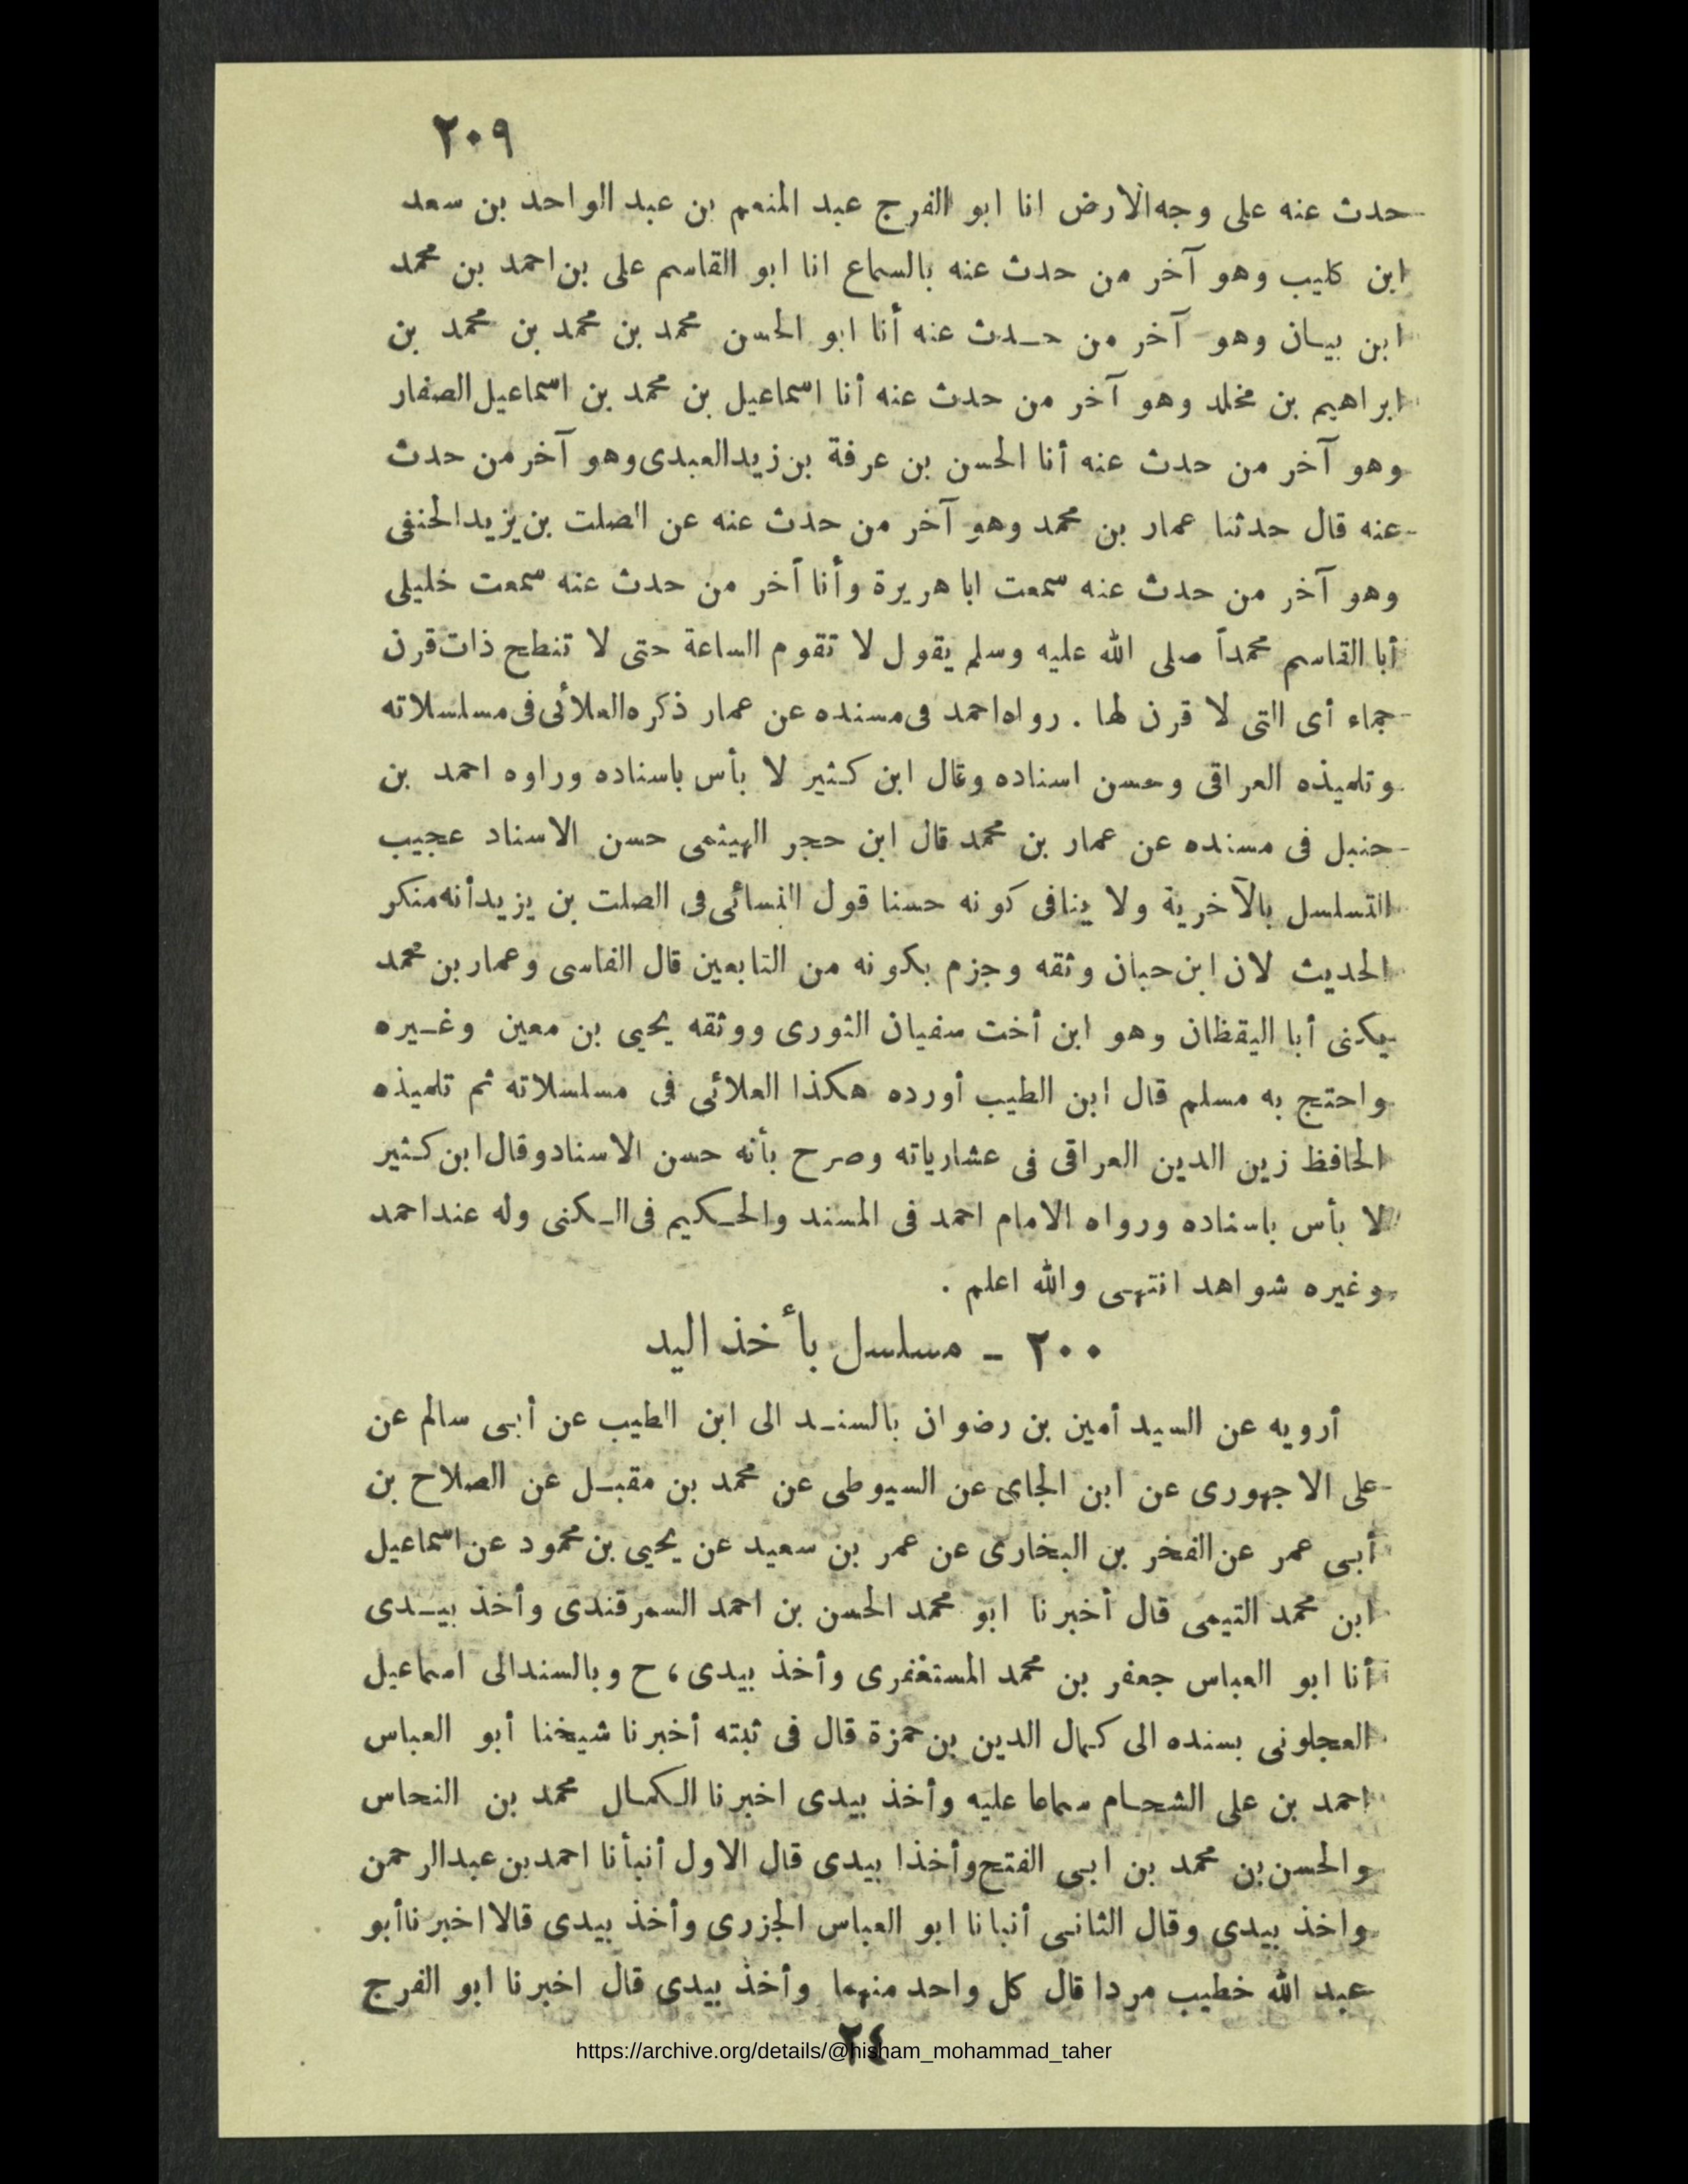 ٢٠٩
حدث عنه على وجه الارض انا ابو الفرج عبد المنعم بن عبد الواحد بن سعد
ابن كليب وهو آخر من حدث عنه بالسماع انا ابو القاسم على بن احمد بن محمد
ابن بيـان وهو آخر من حـدث عنه أنا ابو الحسن محمد بن محمد بن محمد بن
ابراهيم بن مخلد وهو آخر من حدث عنه أنا اسماعيل بن محمد بن اسماعيل الصفار
وهو آخر من حدث عنه أنا الحسن بن عرفة بن زيد العبدى وهو آخر من حدث
عنه قال حدثنا عمار بن محمد وهو آخر من حدث عنه عن الصلت بن يزيد الحنفى
وهو آخر من حدث عنه سمعت ابا هريرة وأنا آخر من حدث عنه سمعت خليلى
أبا القاسم محمداً صلى الله عليه وسلم يقول لا تقوم الساعة حتى لا تنطح ذات قرن
جماء أى التى لا قرن لها . رواه احمد فى مسنده عن عمار ذكره العلائى فى مسلسلاته
وتلميذه العراقى وحسن اسناده وقال ابن كـثير لا بأس باسناده وراوه احمد بن
حنبل فى مسنده عن عمار بن محمد قال ابن حجر الهيثمى حسن الاسناد عجيب
التسلسل بالآخرية ولا ينافى كونه حسنا قول النسائى فى الصلت بن يزيد أنه منكر
الحديث لان ابن حبان وثقه وجزم بكونه من التابعين قال الفاسى وعمار بن محمد
يكنى أبا اليقظان وهو ابن أخت سفيان الثورى ووثقه يحيى بن معين وغـيره
واحتج به مسلم قال ابن الطيب أورده هكذا العلائى فى مسلسلاته ثم تلميذه
الحافظ زين الدين العراقى فى عشارياته وصرح بأنه حسن الاسناد وقال ابن كـثير
لا بأس باسناده ورواه الامام احمد فى المسند والحـكيم فى الـكنى وله عند احمد
وغيره شواهد انتهـى والله اعلم .
٢٠٠ ـ مسلسل بأخذ اليد
أرويه عن السيد أمين بن رضوان بالسنـد الى ابن الطيب عن أبـى سالم عن
على الاجهورى عن ابن الجاى عن السيوطى عن محمد بن مقبـل عن الصلاح بن
أبـى عمر عن الفخر بن البخارى عن عمر بن سعيد عن يحيى بن محمود عن اسماعيل
ابن محمد التيمى قال أخبرنا ابو محمد الحسن بن احمد السمرقندى وأخذ بيـدى
أنا ابو العباس جعفر بن محمد المستغفرى وأخذ بيدى ، ح وبالسند الى اسماعيل
العجلونى بسنده الى كـمال الدين بن حمزة قال فى ثبته أخبرنا شيخنا أبو العباس
احمد بن على الشحـام سماعا عليه وأخذ بيدى اخبرنا الـكمـال محمد بن النحاس
والحسن بن محمد بن ابـى الفتح وأخذا بيدى قال الاول أنبأنا احمد بن عبد الرحمن
واخذ بيدى وقال الثانـى أنبانا ابو العباس الجزرى وأخذ بيدى قالا اخبرنا أبو
عبد الله خطيب مردا قال كل واحد منهما وأخذ بيدى قال اخبرنا ابو الفرج
٢٤
https://archive.org/details/@hisham_mohammad_taher